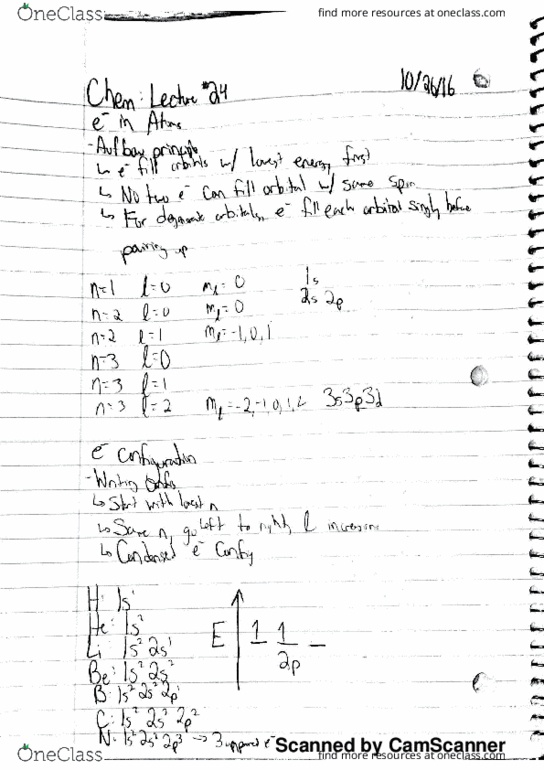 OneClass
find more resources at oneclass.com
Chem: Lecture #24
10/26/16
e⁻ in Atoms
- Aufbau principle
↳ e⁻ fill orbitals w/ lowest energy first
↳ No two e⁻ can fill orbital w/ same spin
↳ For degenerate orbitals, e⁻ fill each orbital singly before
pairing up
n=1 l=0 mₗ=0 1s
n=2 l=0 mₗ=0 2s 2p
n=2 l=1 mₗ=-1,0,1
n=3 l=0
n=3 l=1
n=3 l=2 mₗ=-2,-1,0,1,2 3s3p3d
e⁻ configuration
- Writing
↳ Start with lowest n
↳ Same n, go left to right, l increasing
↳ Condensed e⁻ config
H: 1s¹
He: 1s²
Li: 1s² 2s¹
Be: 1s² 2s²
B: 1s² 2s² 2p¹
C: 1s² 2s² 2p²
N: 1s² 2s² 2p³ → 3 unpaired e⁻
E 1 1 _
2p
Scanned by CamScanner
OneClass
find more resources at oneclass.com